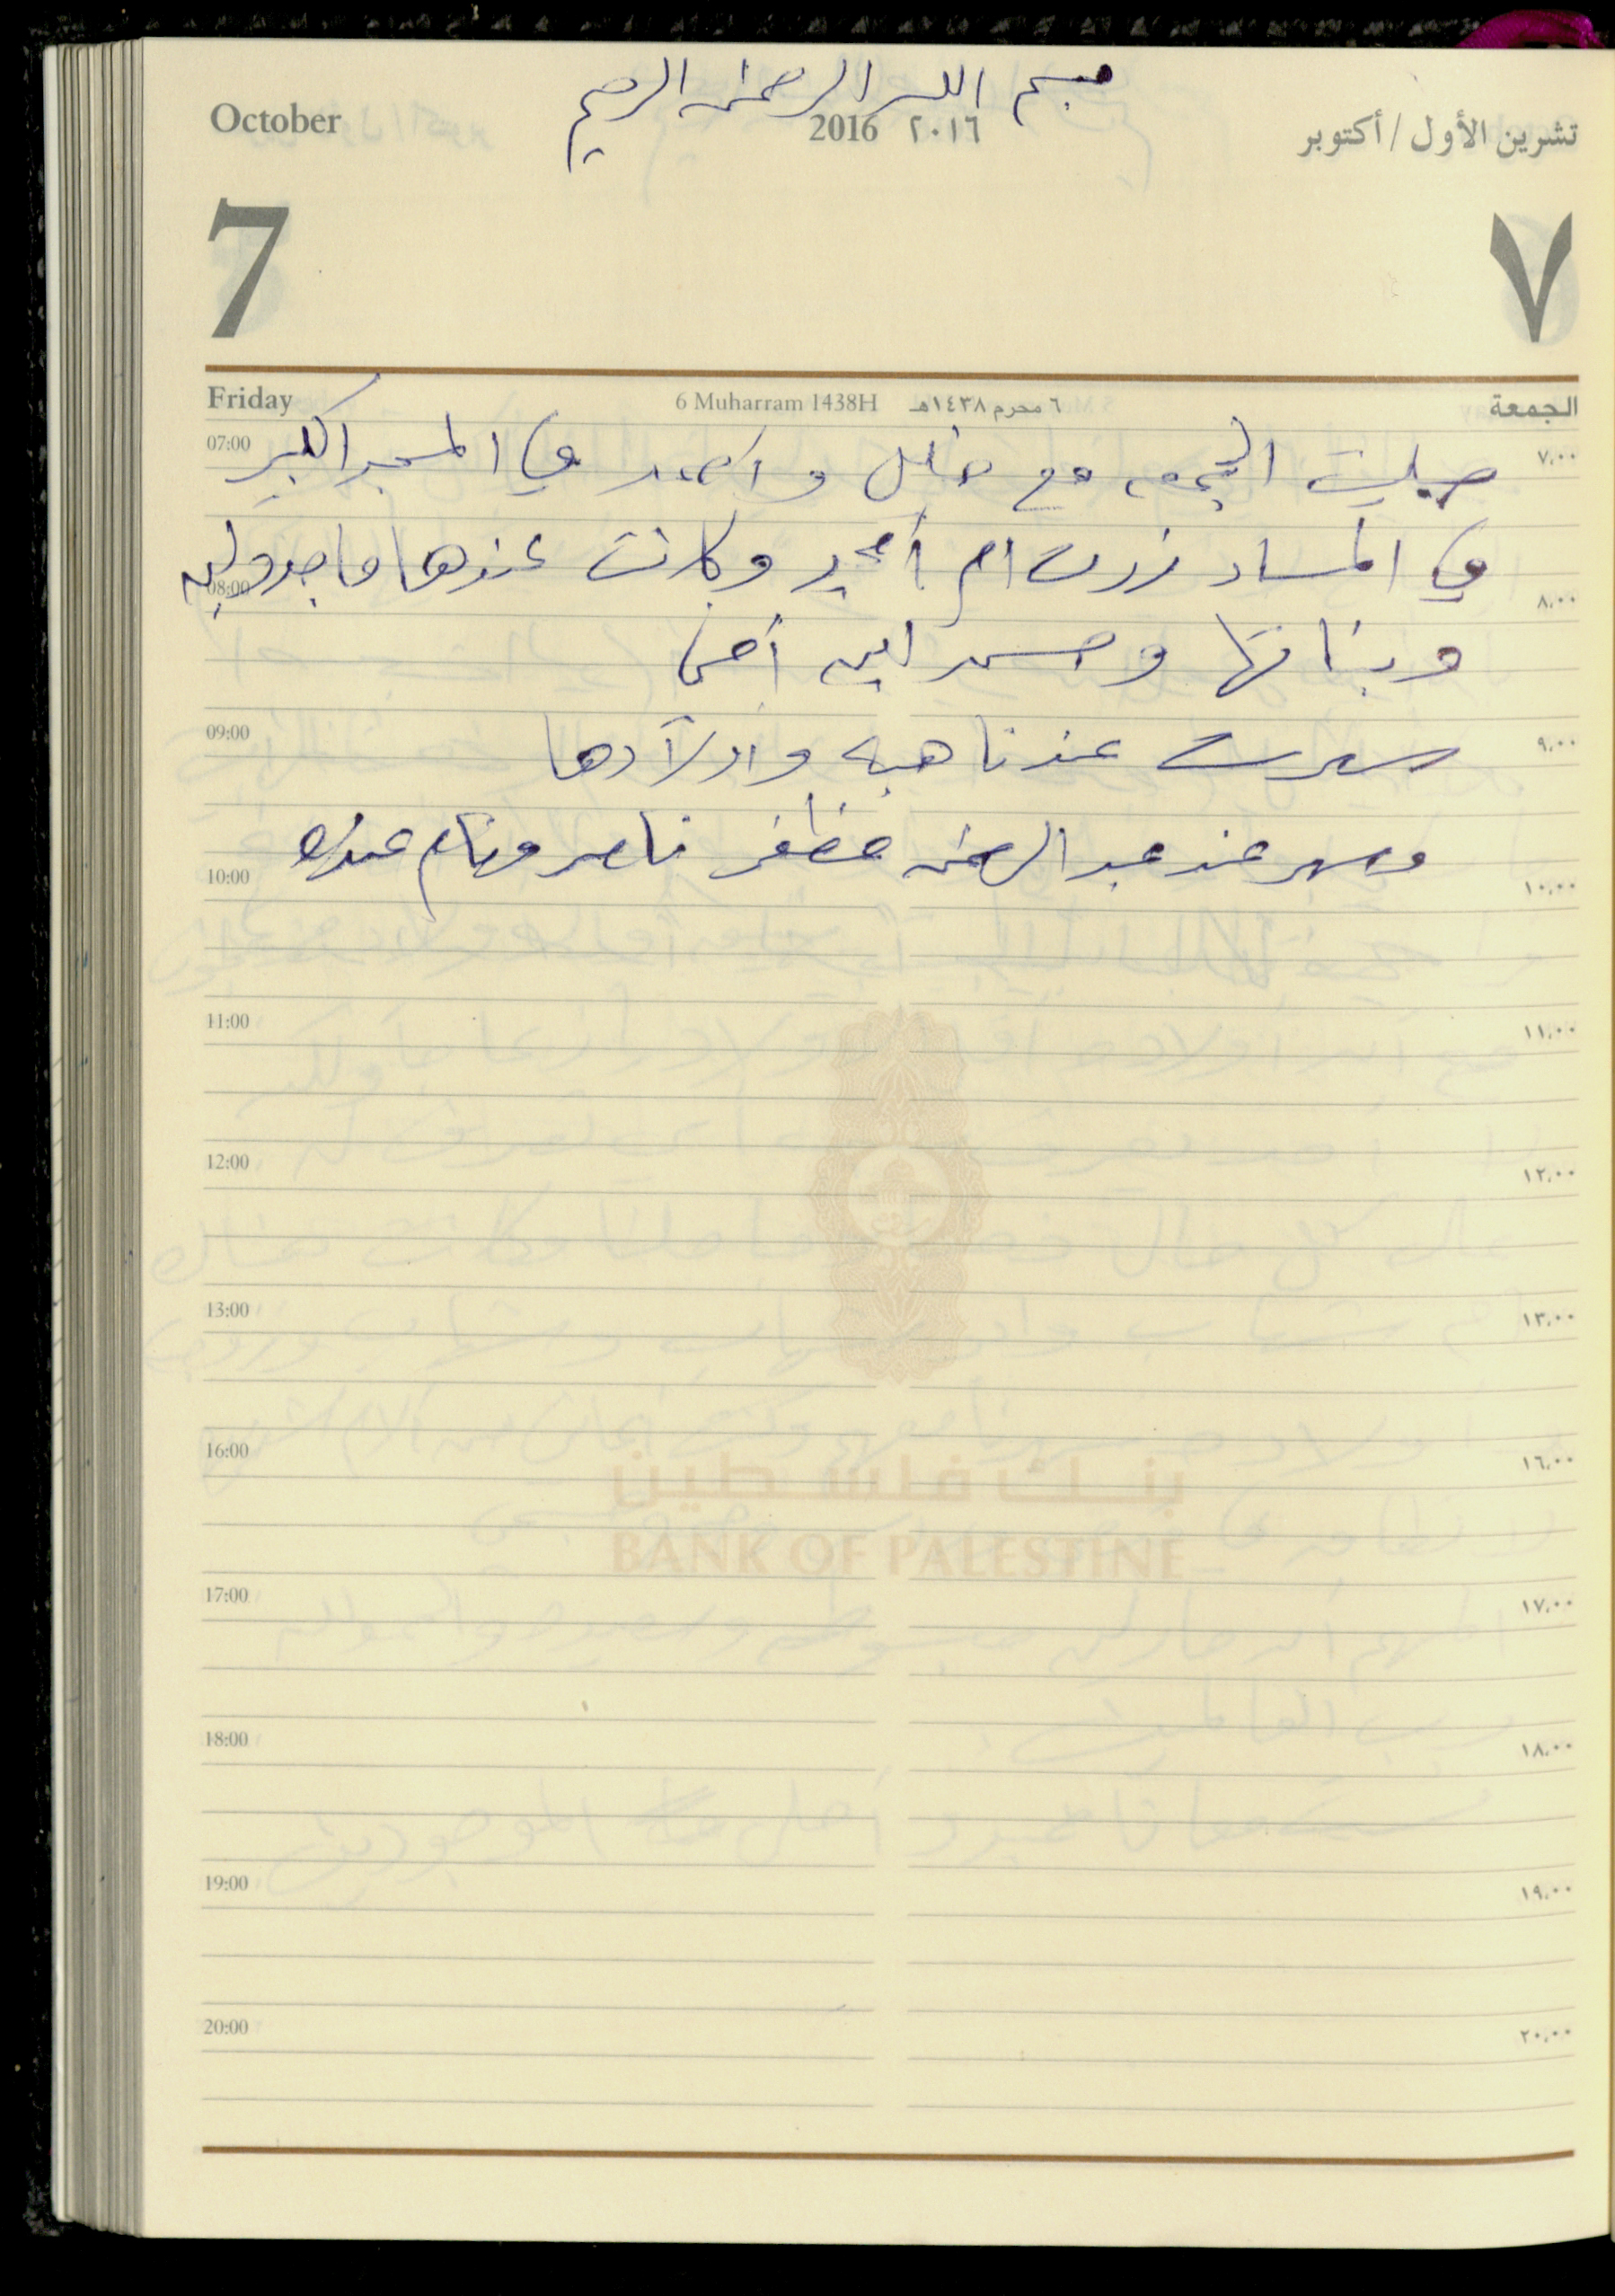 بسم الله الرحمن الرحيم
October 2016 ٢٠١٦ تشرين الأول / أكتوبر
7 ٧
Friday 6 Muharram 1438H ٦ محرم ١٤٣٨هـ الجمعة
صليت الجمعة مع خليل و احمد في المسجد الكبير
07:00 ٧،٠٠
في المساء زرت ام أمجد وكانت عندها ماجدولين
08:00 ٨،٠٠
وبناتها و ابن أخي
سهرت عندنا هبه واولادها
09:00 ٩،٠٠
وسهر عند عبد الرحمن مظفر ناصر ونام عنده
10:00 ١٠،٠٠
11:00 ١١،٠٠
12:00 ١٢،٠٠
13:00 ١٣،٠٠
16:00 ١٦،٠٠
بنك فلسطين
BANK OF PALESTINE
17:00 ١٧،٠٠
18:00 ١٨،٠٠
19:00 ١٩،٠٠
20:00 ٢٠،٠٠